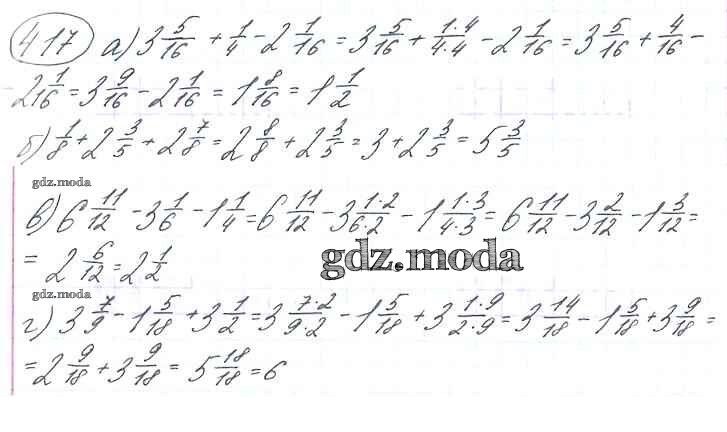 417 а) 3 5/16 + 1/4 - 2 1/16 = 3 5/16 + 1·4/4·4 - 2 1/16 = 3 5/16 + 4/16 -
2 1/16 = 3 9/16 - 2 1/16 = 1 8/16 = 1 1/2
б) 1/8 + 2 3/5 + 2 7/8 = 2 8/8 + 2 3/5 = 3 + 2 3/5 = 5 3/5
gdz.moda
в) 6 11/12 - 3 1/6 - 1 1/4 = 6 11/12 - 3 1·2/6·2 - 1 1·3/4·3 = 6 11/12 - 3 2/12 - 1 3/12 =
= 2 6/12 = 2 1/2
gdz.moda
gdz.moda
г) 3 7/9 - 1 5/18 + 3 1/2 = 3 7·2/9·2 - 1 5/18 + 3 1·9/2·9 = 3 14/18 - 1 5/18 + 3 9/18 =
= 2 9/18 + 3 9/18 = 5 18/18 = 6